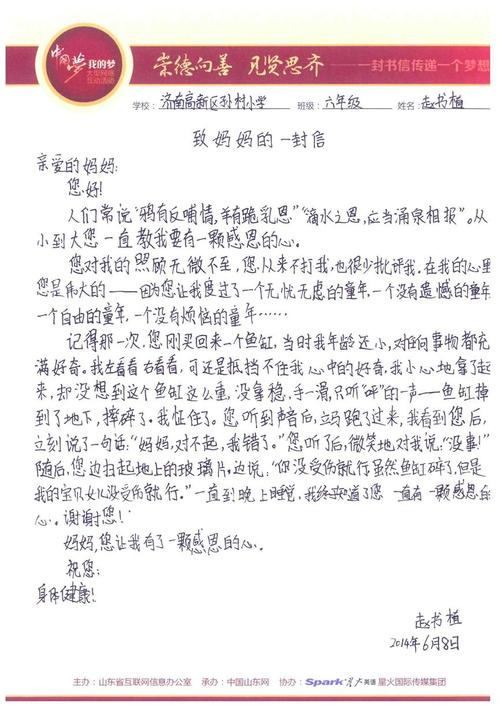 中国梦 我的梦
大型网络
互动活动
崇德向善 见贤思齐 ——一封书信传递一个梦想
学校: 济南高新区孙村小学 班级: 六年级 姓名: 赵书植
致妈妈的一封信
亲爱的妈妈:
您好!
人们常说“鸦有反哺情,羊有跪乳恩”“滴水之恩,应当涌泉相报”。从
小到大您一直教我要有一颗感恩的心。
您对我的照顾无微不至,您从来不打我,也很少批评我。在我的心里
您是伟大的——因为您让我度过了一个无忧无虑的童年,一个没有遗憾的童年
一个自由的童年,一个没有烦恼的童年……
记得那一次,您刚买回来一个鱼缸,当时我年龄还小,对任何事物都充
满好奇。我左看看右看看,可还是抵挡不住我心中的好奇。我小心地拿了起
来,却没想到这个鱼缸这么重,没拿稳,手一滑,只听“呯”的一声——鱼缸掉
到了地下,摔碎了。我怔住了。您,听到声音后,立马跑了过来,我看到您后,
立刻说了一句话:“妈妈,对不起,我错了。”您,听了后,微笑地对我说:“没事!”
随后,您边扫起地上的玻璃片,边说:“你没受伤就行虽然鱼缸碎了,但是
我的宝贝女儿没受伤就行。”一直到晚上睡觉,我终于知道了您一直有一颗感恩的
心。谢谢您!
妈妈,您让我有了一颗感恩的心。
祝您:
身体健康!
赵书植
2014年6月8日
主办:山东省互联网信息办公室 承办:中国山东网 协办:Spark星火英语 星火国际传媒集团